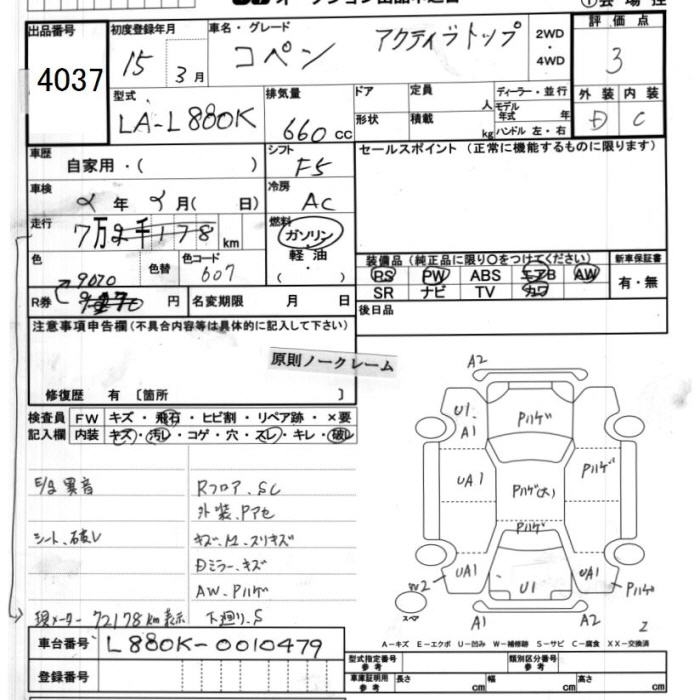 出品番号
4037
初度登録年月
15 3月
車名・グレード
コペン アクティブトップ
2WD
・
4WD
評価点
3
型式
LA-L880K
排気量
660cc
ドア
形状
定員 人
積載 kg
ディーラー・並行
モデル年式 年
ハンドル 左・右
外装 内装
D C
車歴
自家用・( )
シフト
F5
セールスポイント (正常に機能するものに限ります)
車検
2年2月( 日)
冷房
AC
走行
7万2千178km
燃料
ガソリン
軽油
・( )
色
色替
色コード
607
9070
R券 円
名変期限 月 日
装備品 (純正品に限り○をつけてください)
PS PW ABS エアB AW
SR ナビ TV カワ
新車保証書
有・無
後日品
注意事項申告欄(不具合内容等は具体的に記入して下さい)
原則ノークレーム
修復歴 有 〔箇所 〕
検査員
記入欄
FW キズ・飛石・ヒビ割・リペア跡・×要
内装 キズ・汚レ・コゲ・穴・スレ・キレ・破レ
E/g異音
Rフロア、SC
外装、Pアセ
シート、破レ
キズ・M、スリキズ
Dミラー、キズ
AW、Pハゲ
現メーター 72178km表示
下廻り、S
A2
U1、A1
Pハゲ
UA1
Pハゲ(大)
Pハゲ
Pハゲ
W2
UA1
U1
UA1
Pハゲ
スペア
A1
A2
A-キズ E-エクボ U-凹み W-補修跡 S-サビ C-腐食 XX-交換済
車台番号
L880K-0010479
登録番号
型式指定番号
参考
類別区分番号
参考
車庫証明用
参考
長さ cm
幅 cm
高さ cm